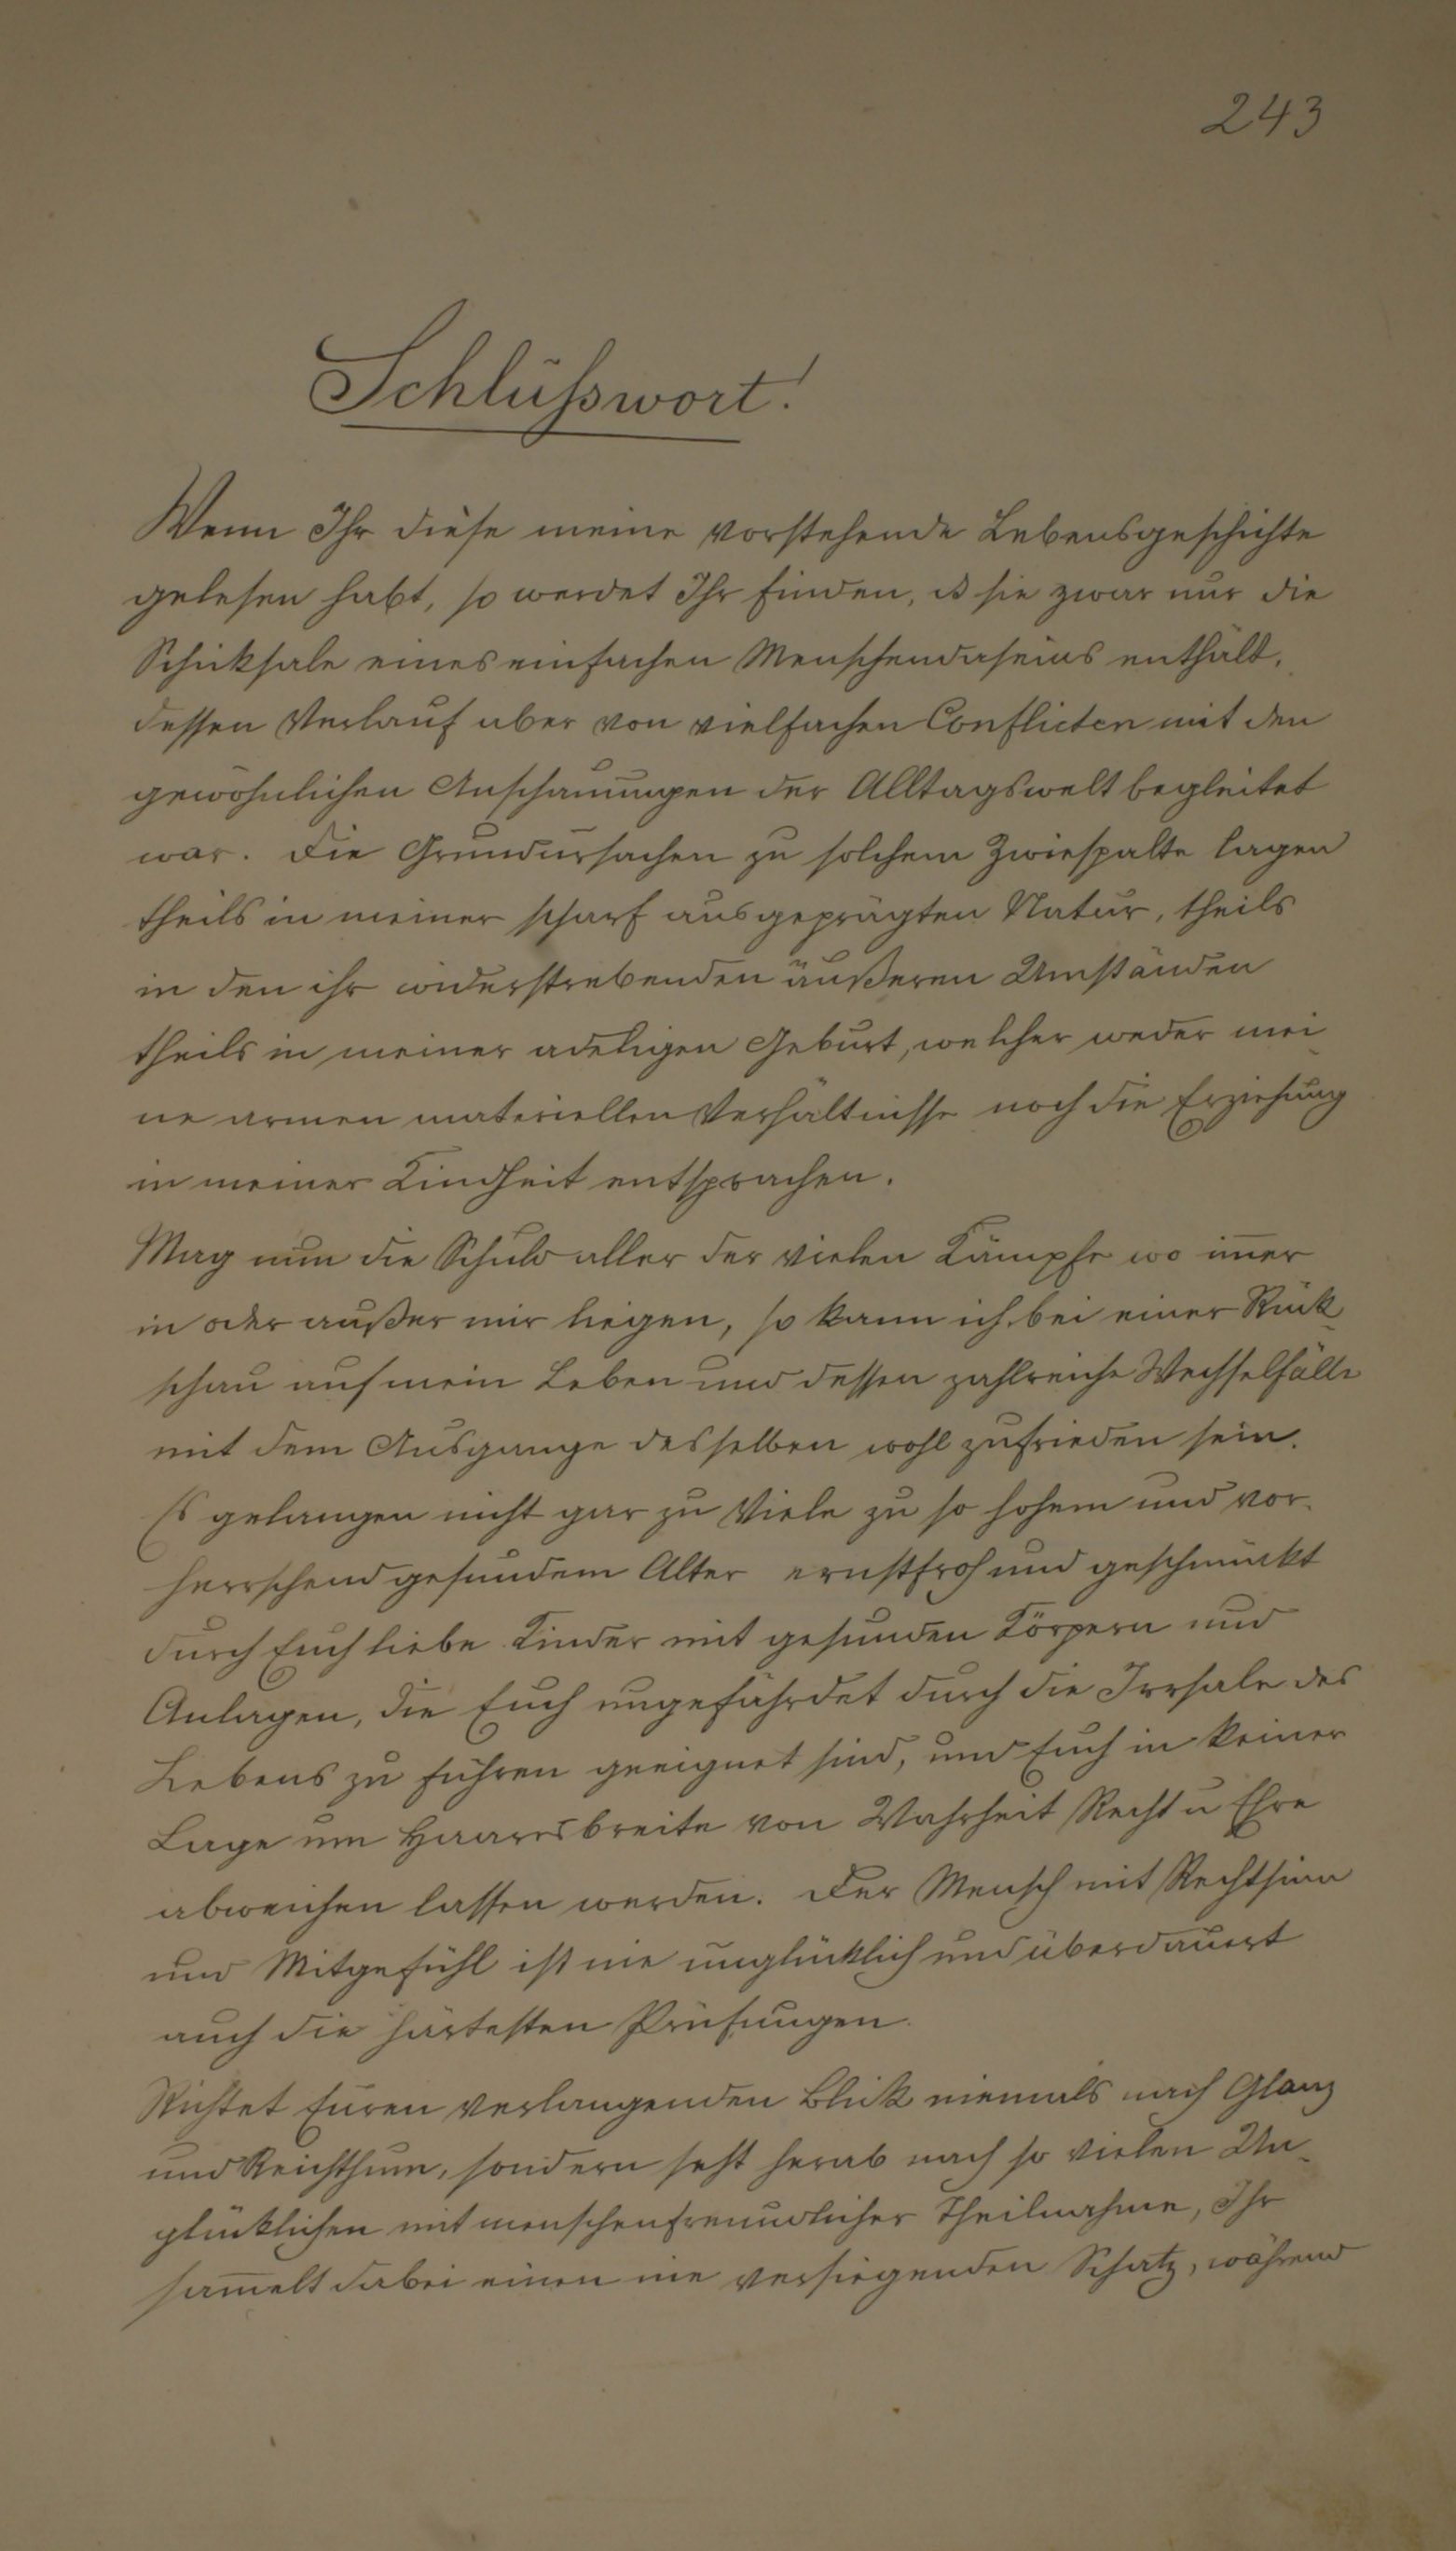 243
Schlußwort!
Wenn Ihr diese meine vorstehende Lebensgeschichte
gelesen habt, so werdet Ihr finden, ß sie zwar nur die
Schicksale eines einfachen Menschendaseins enthält,
dessen Verlauf aber von vielfachen Conflicten mit den
gewöhnlichen Anschauungen der Alltagswelt begleitet
war. Die Grundursachen zu solchem Zwiespalte lagen
theils in meiner scharf ausgeprägten Natur, theils
in den ihr widerstrebenden äußeren Umständen
theils in meiner adeligen Geburt, welcher weder mei
ne armen materiellen Verhältnisse noch die Erziehung
in meiner Kindheit entsprachen.
Mag nun die Schuld aller der vielen Kämpfe wo im̄er
in oder außer mir liegen, so kann ich bei einer Rück
schau auf mein Leben und dessen zahlreiche Wechselfälle
mit dem Ausgange desselben wohl zufrieden sein.
Es gelangen nicht gar zu Viele zu so hohem und vor-
herrschend gesundem Alter ernstfroh und geschmückt
durch Euch liebe Kinder mit gesunden Körpern und
Anlagen, die Euch ungefährdet durch die Irrsale des
Lebens zu führen geeignet sind, und Euch in keiner
Lage um Haaresbreite von Wahrheit Recht u Ehre
abweichen lassen werden. Der Mensch mit Rechtsinn
und Mitgefühl ist nie unglücklich und überdauert
auch die härtesten Prüfungen.
Richtet Euren verlangenden Blick niemals nach Glanz
und Reichthum, sondern seht herab nach so vielen Un-
glücklichen mit menschenfreundlicher Theilnahme, Ihr
sam̄elt dabei einen nie versiegenden Schatz, während